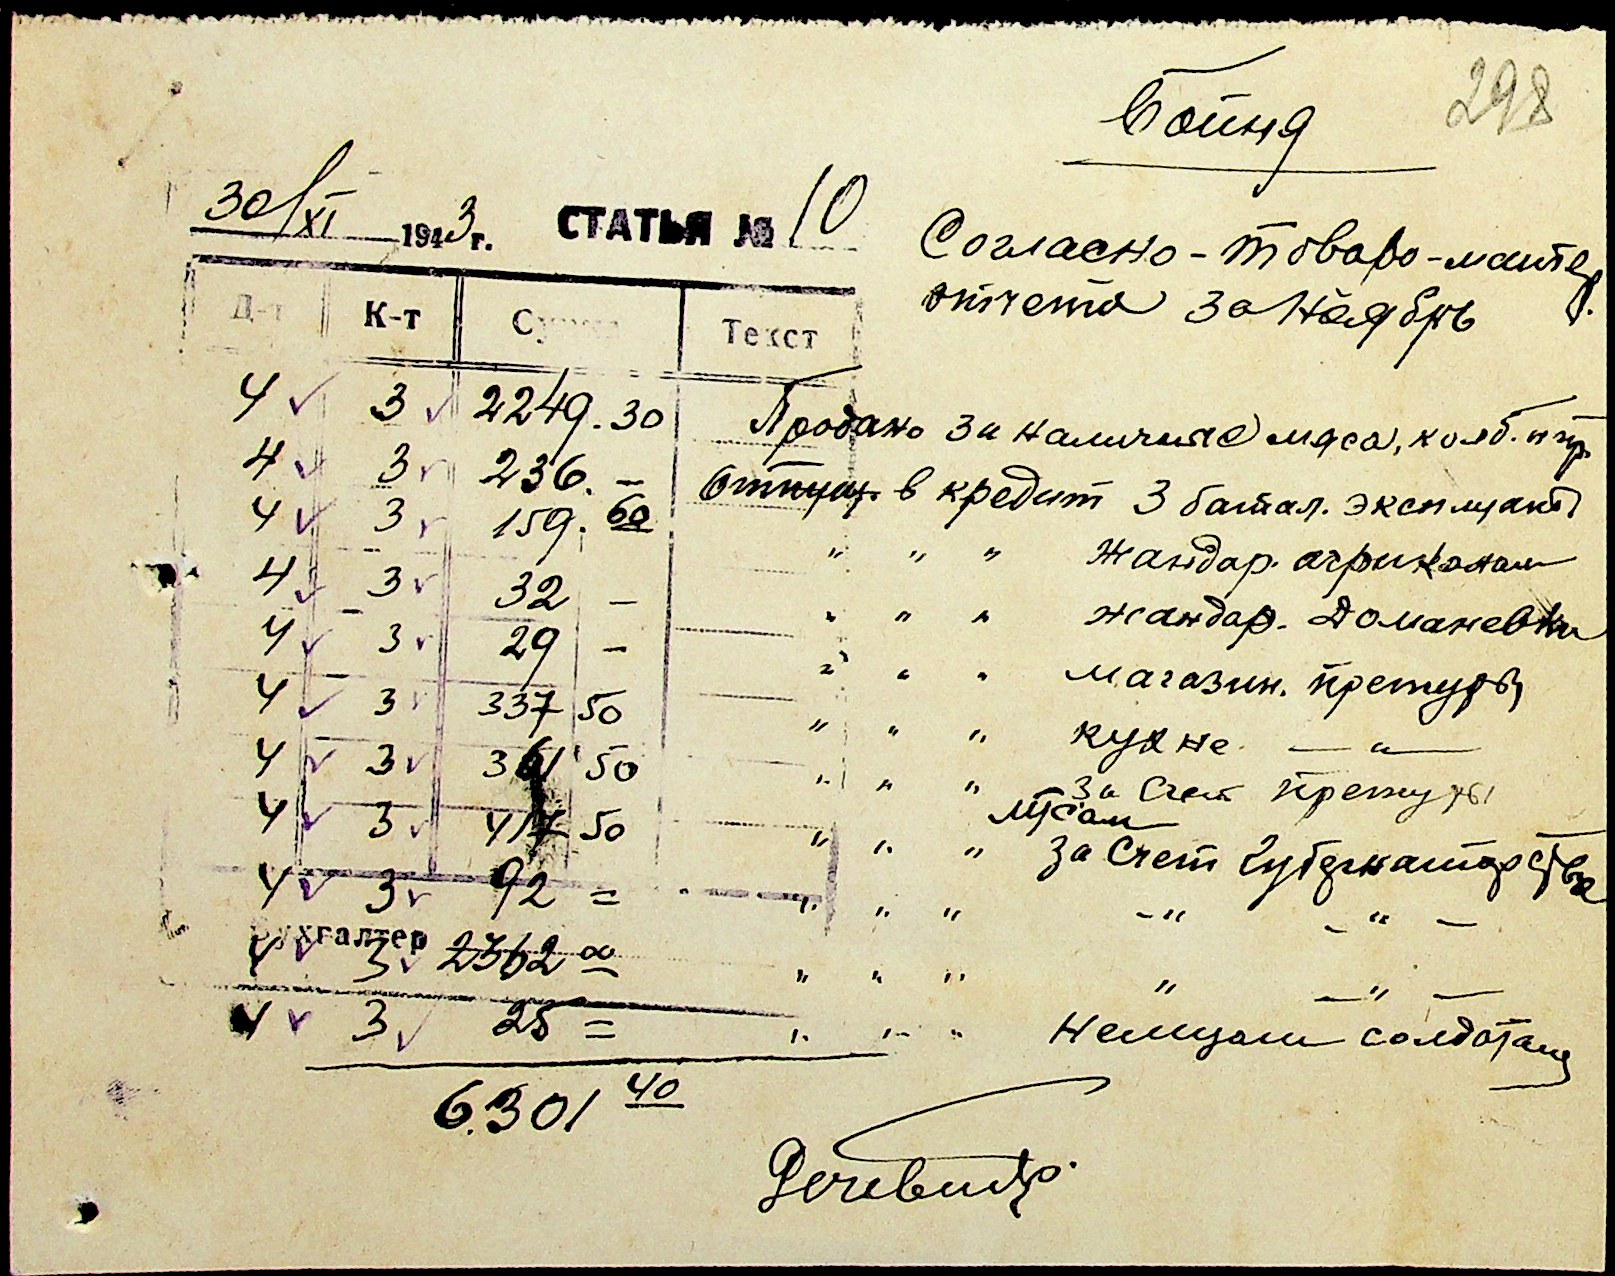 298
Бойня
30/XI 1943 г. СТАТЬЯ № 10
Согласно - товаро-матер.
отчета за Ноябрь
Д-т К-т Сумма Текст
4 3 2249.30 Продано за наличные мяса, колб. и пр.
4 3 236. — Отпущ. в кредит 3 батал.
4 3 159.60 " " " Жандар.
4 3 32 — " " " жандар. Доманевки
4 3 29 — " " " магазин. претуры
4 3 337 50 " " " кухне — " —
4 3 361 50 " " " за счет претуры
4 3 417 50 " " " за счет Губернаторства
4 3 92 = " " " — " — " —
Бухгалтер
4 3 2362 00 " " " " — " —
4 3 25 = " " " немцам солдатам
6.301 40